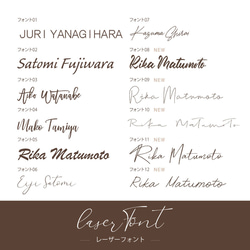 フォント01
JURI YANAGIHARA
フォント02
Satomi Fujiwara
フォント03
Aiko Watanabe
フォント04
Mako Tamiya
フォント05
Rika Matumoto
フォント06
Eiji Satomi
フォント07
Kazuma Ghira
フォント08 NEW
Rika Matumoto
フォント09 NEW
Rika Matumoto
フォント10 NEW
Rika Matumoto
フォント11 NEW
Rika Matumoto
フォント12 NEW
Rika Matumoto
laser font
レーザーフォント